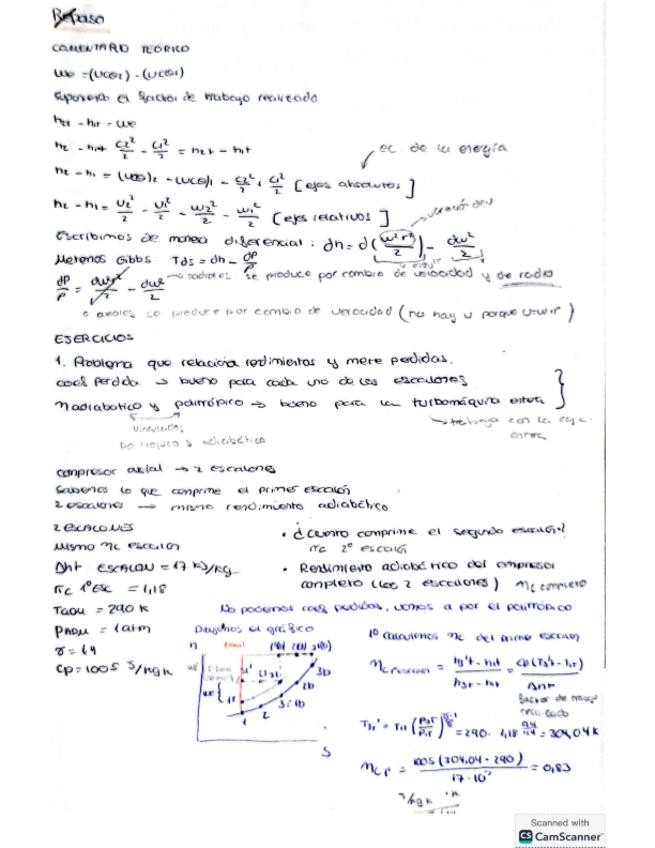 Repaso
COMENTARIO TEÓRICO
we = (ucθ2) - (ucθ1)
el factor de trabajo realizado
h2t - h1t = we
h2 - h1 + c2²/2 - c1²/2 = h2t - h1t
ec. de la energía
h2 - h1 = (ucθ)2 - (ucθ)1 - c2²/2 + c1²/2 [ejes absolutos]
h2 - h1 = u2²/2 - u1²/2 - w2²/2 - w1²/2 [ejes relativos]
Escribimos de manera diferencial: dh = d(w²r²/2) - dw²/2
Gibbs: Tds = dh - dP/ρ
dP/ρ = dw²r²/2 - dw²/2
radiales se produce por cambio de velocidad y de radio
axiales se produce por cambio de velocidad (no hay u porque u=wr)
EJERCICIOS
1. Problema que relaciona rendimientos y mete pedidas.
coef perdida → bueno para cada uno de los escalones
η adiabatico y politrópico → bueno para la turbomáquina entera
→ trabajo con la
entera
vinculados
adiabático
compresor axial → 2 escalones
Sabemos lo que comprime el primer escalón
2 escalones → mismo rendimiento adiabático
2 ESCALONES
Mismo ηc escalón
Δht ESCALÓN = 17 kJ/kg
πc 1º ESC = 1,18
TADM = 290 K
PADM = 1 atm
γ = 1,4
cp = 1005 J/kg K
• ¿Cuánto comprime el segundo escalón?
πc 2º escalón
• Rendimiento adiabático del compresor
completo (los 2 escalones) ηc completo
No podemos coef pedidas, vamos a por el politrópico
Dibujamos el gráfico
h
1
2
2b
3b
S
1º Calculamos ηc del primer escalón
ηc = h3't - h1t / h3t - h1t = cp(T3't - T1t) / Δht
Factor de trabajo
T3t' = T1t (P3t/P1t)^(γ-1/γ) = 290 · 1,18^(0,4/1,4) = 304,04 K
ηc = 1005 (304,04 - 290) / 17 · 10³ = 0,83
J/kg K · K
Scanned with
CS CamScanner